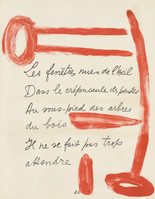 Les fenêtres nues de l'œil
Dans le crépuscule des portes
Au sous-pied des arbres
du bois
Il ne se fait pas trop
attendre